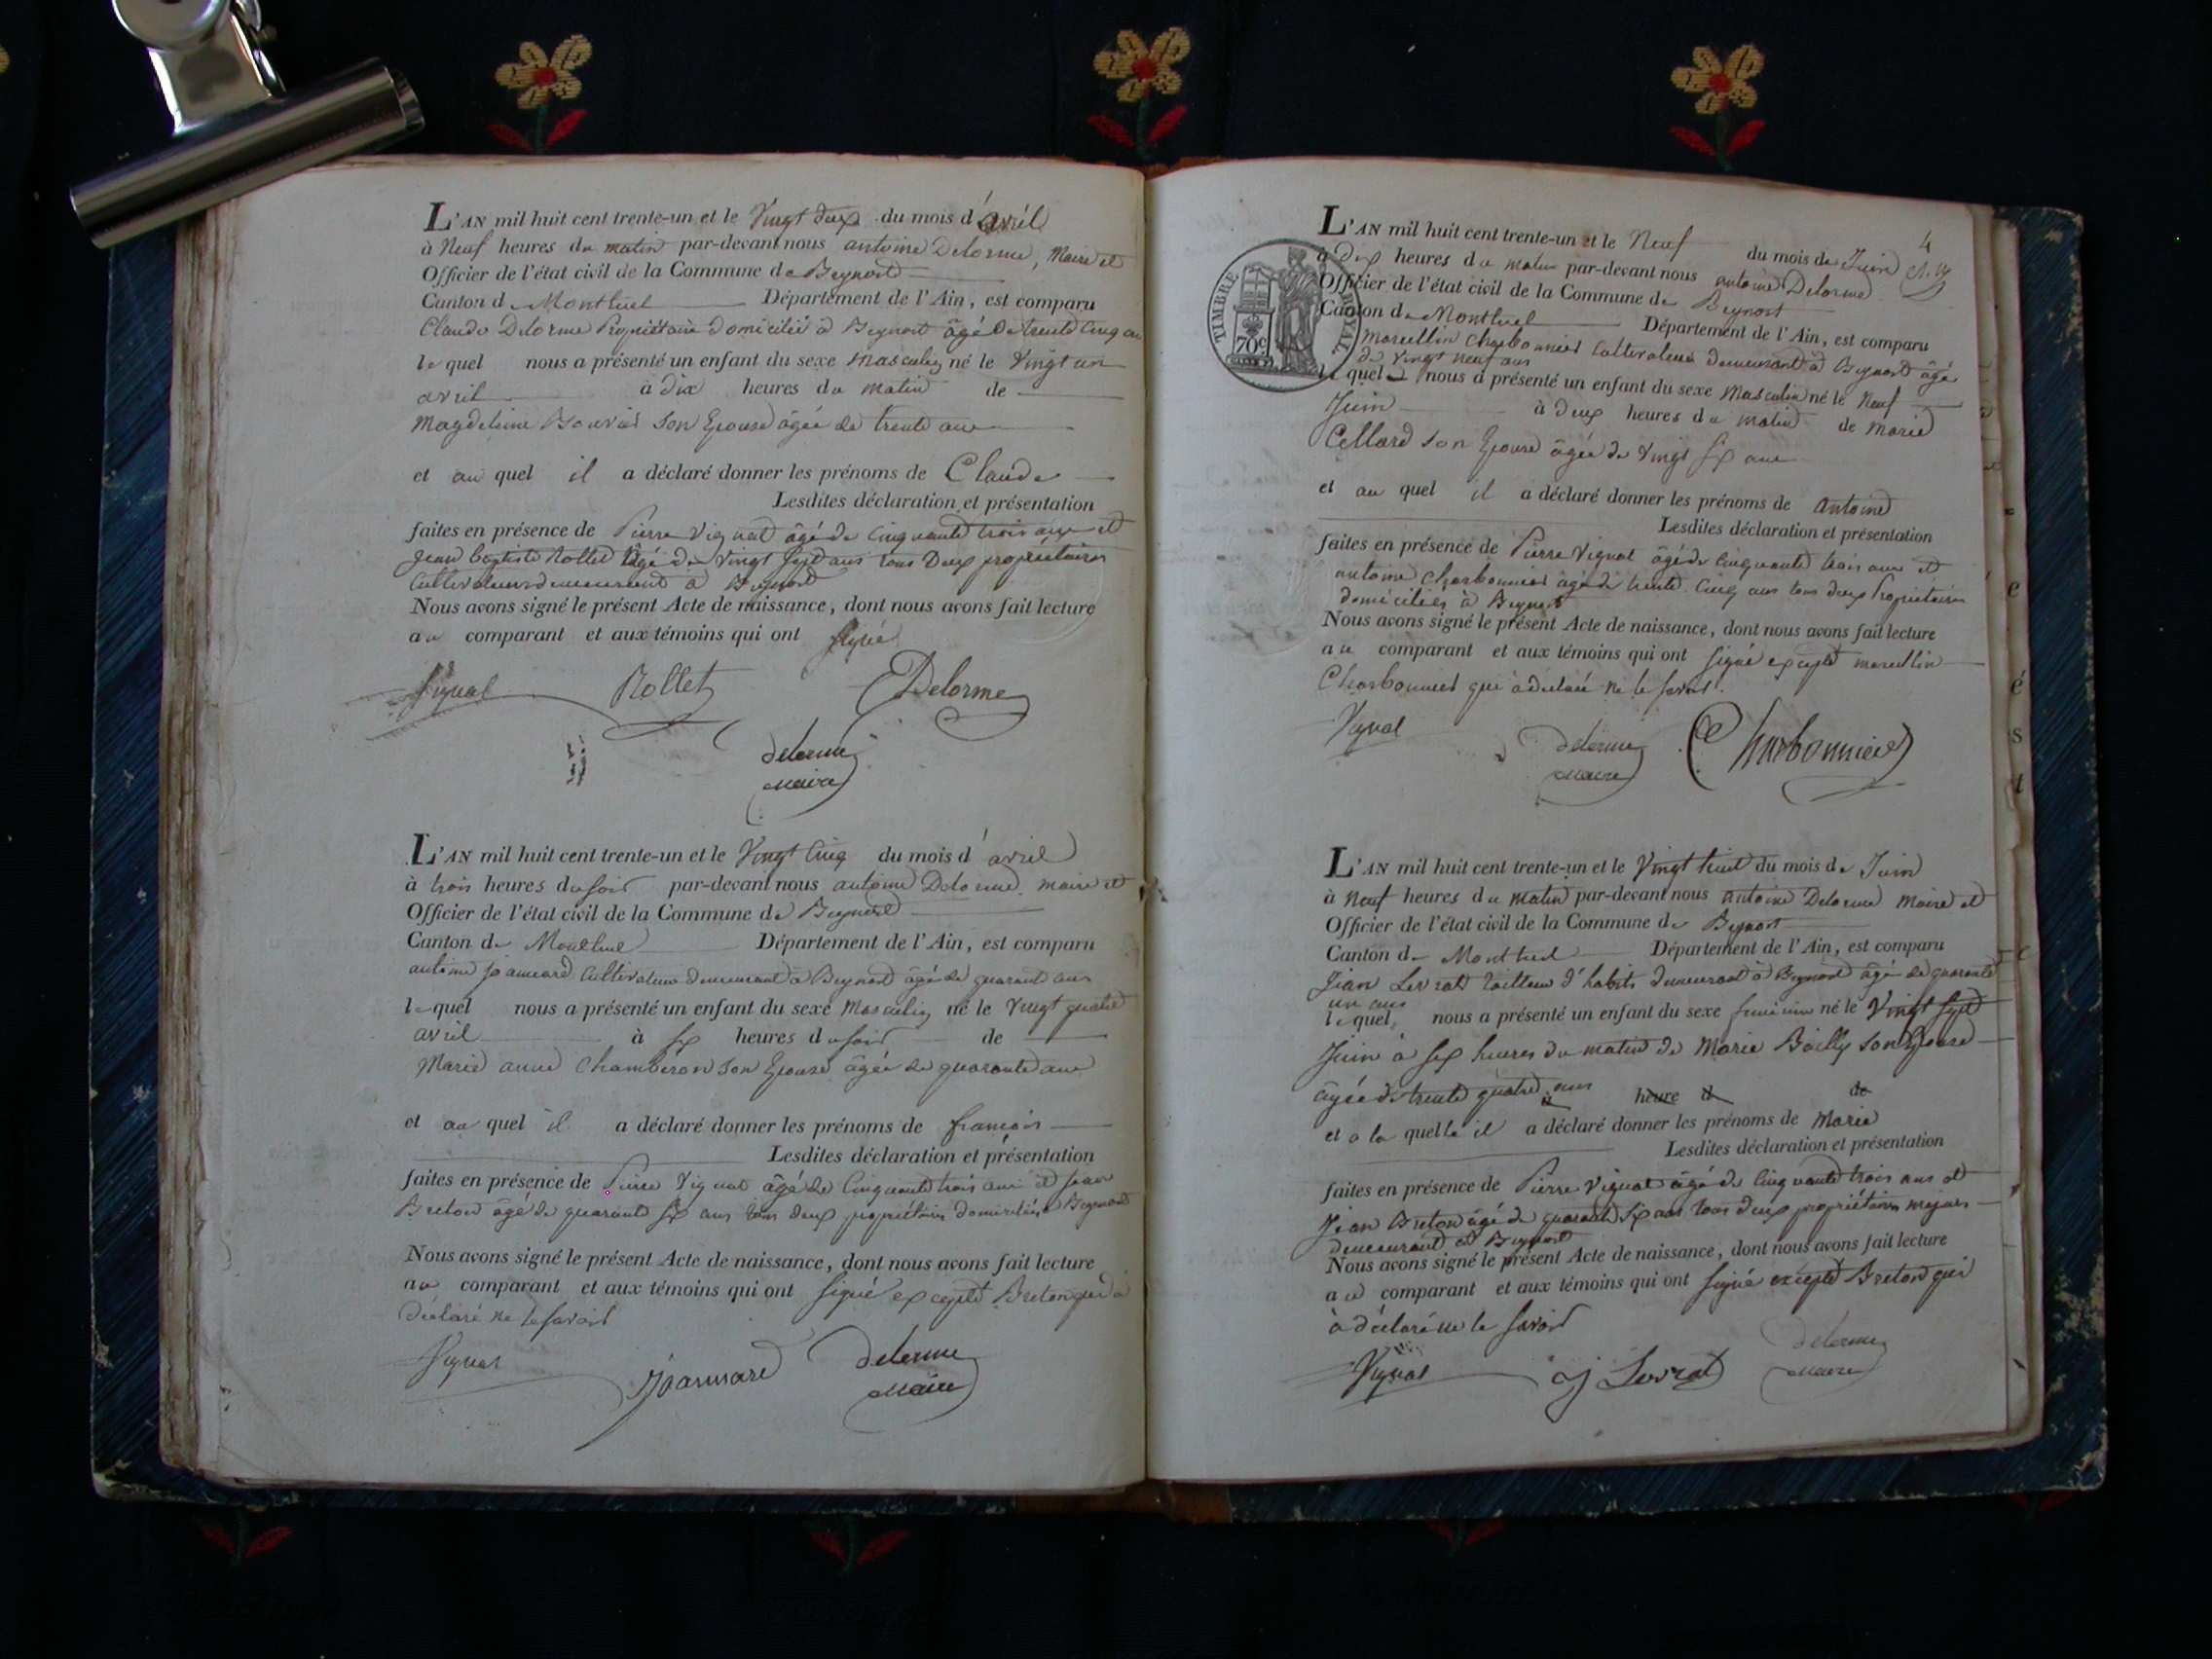 L'AN mil huit cent trente-un et le Vingt deux du mois d'avril
à Neuf heures du matin par-devant nous antoine Delorme, Maire et
Officier de l'état civil de la Commune de Beynost
Canton de Montluel Département de l'Ain, est comparu
Claude Delorme Propriétaire domicilié à Beynost âgé de trente cinq an
lequel nous a présenté un enfant du sexe masculin né le Vingt un
avril à dix heures du matin de
Magdeleine Bouvier son Epouse âgée de trente ans
et au quel il a déclaré donner les prénoms de Claude
Lesdites déclaration et présentation
faites en présence de Pierre Vignat âgé de cinquante trois ans et
Jean baptiste Rollet âgé de vingt sept ans tous Deux propriétaires
Cultivateurs demeurant à Beynost
Nous avons signé le présent Acte de naissance, dont nous avons fait lecture
au comparant et aux témoins qui ont signé
Vignat Rollet CDelorme
delorme
maire
L'AN mil huit cent trente-un et le Vingt Cinq du mois d'avril
à trois heures du soir par-devant nous antoine Delorme maire et
Officier de l'état civil de la Commune de Beynost
Canton de Montluel Département de l'Ain, est comparu
antoine joannard Cultivateur demeurant à Beynost âgé de quarante ans
lequel nous a présenté un enfant du sexe Masculin né le vingt quatre
avril à six heures du soir de
Marie anne Chambéron son Epouse âgée de quarante ans
et au quel il a déclaré donner les prénoms de françois
Lesdites déclaration et présentation
faites en présence de Pierre Vignat âgé de Cinquante trois ans et Jean
Breton âgé de quarante six ans tous deux propriétaires domiciliés à Beynost
Nous avons signé le présent Acte de naissance, dont nous avons fait lecture
au comparant et aux témoins qui ont signé excepté Breton qui a
déclaré ne le savoir
Vignat Joannard delorme
maire
4
TIMBRE ROYAL
70c
L'AN mil huit cent trente-un et le Neuf du mois de Juin
à dix heures du matin par-devant nous antoine Delorme
Officier de l'état civil de la Commune de Beynost
Canton de Montluel Département de l'Ain, est comparu
marcellin Charbonnier Cultivateur demeurant à Beynost âgé
de vingt neuf ans
lequel nous a présenté un enfant du sexe Masculin né le Neuf
Juin à deux heures du matin de Marie
Cellard son Epouse âgée de Vingt six ans
et au quel il a déclaré donner les prénoms de antoine
Lesdites déclaration et présentation
faites en présence de Pierre Vignat âgé de cinquante trois ans et
antoine Charbonnier âgé de trente cinq ans tous deux Propriétaires
domiciliés à Beynost
Nous avons signé le présent Acte de naissance, dont nous avons fait lecture
au comparant et aux témoins qui ont signé excepté marcellin
Charbonnier qui à déclaré ne le savoir.
Vignat delorme Charbonnier
maire
L'AN mil huit cent trente-un et le Vingt huit du mois de Juin
à Neuf heures du matin par-devant nous antoine Delorme Maire et
Officier de l'état civil de la Commune de Beynost
Canton de Montluel Département de l'Ain, est comparu
Jean Levrat Tailleur d'habits demeurant à Beynost âgé de quarante
un ans
lequel nous a présenté un enfant du sexe feminin né le Vingt sept
Juin à six heures du matin de Marie Bailly son Epouse
âgée de trente quatre ans à heure d de
et a la quelle il a déclaré donner les prénoms de Marie
Lesdites déclaration et présentation
faites en présence de Pierre Vignat âgé de Cinquante trois ans et
Jean Breton âgé de quarante six ans tous deux propriétaires majeurs
demeurant à Beynost
Nous avons signé le présent Acte de naissance, dont nous avons fait lecture
au comparant et aux témoins qui ont signé excepté Breton qui
à déclaré ne le savoir
Vignat J Levrat delorme
maire